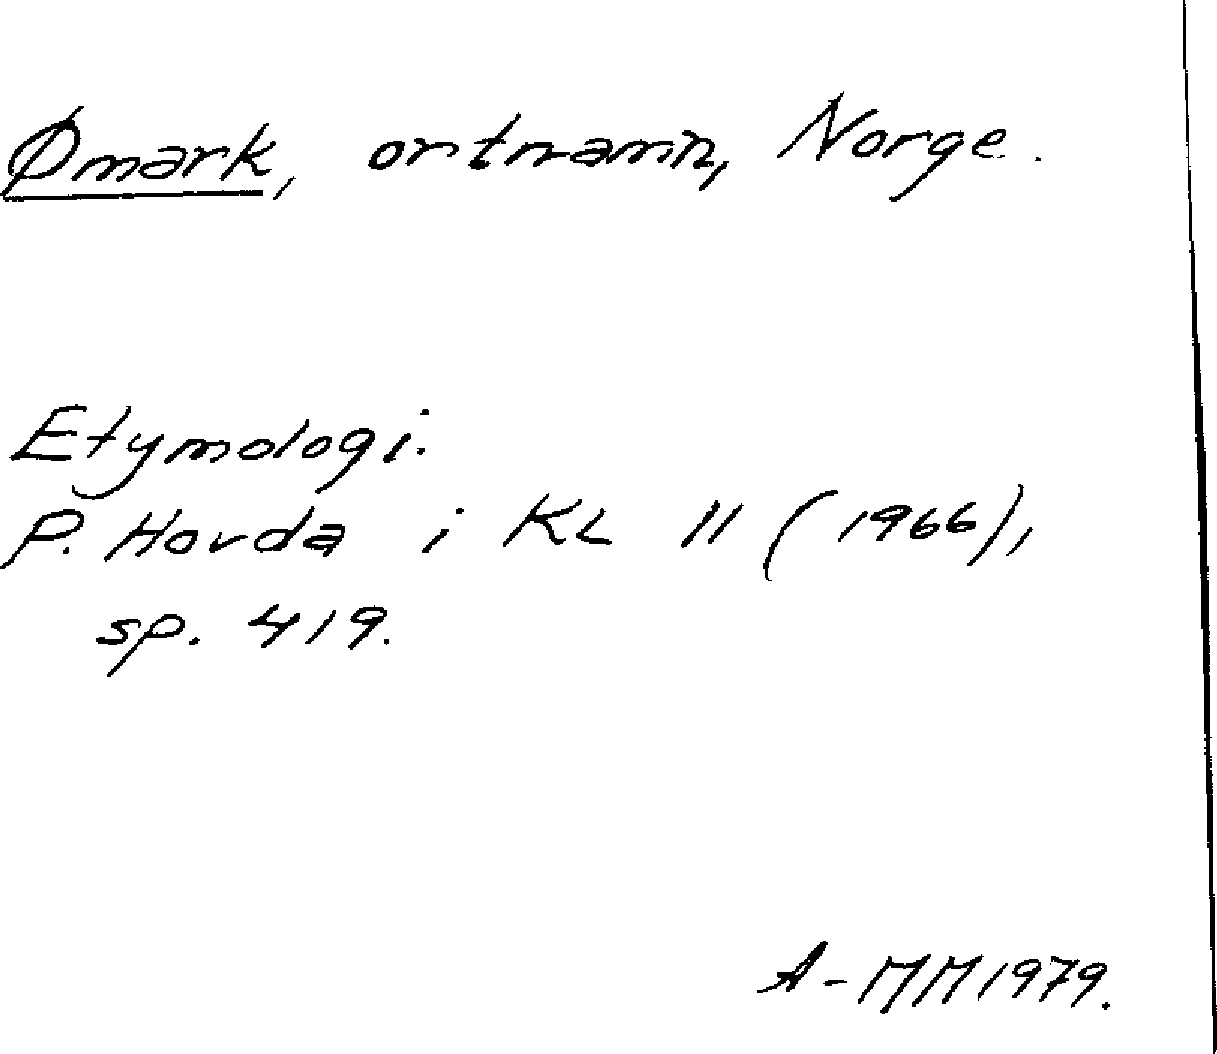 Ømark, ortnamn, Norge.
Etymologi.
P. Hovda i KL 11 (1966),
sp. 419.
A-MM1979.